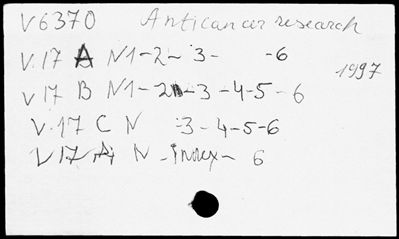 V6370 Anticancer research
V.17 A N1-2- 3- -6
1997
V17 B N1-2-3-4-5-6
V.17 C N -3-4-5-6
V17 A N - Index- 6